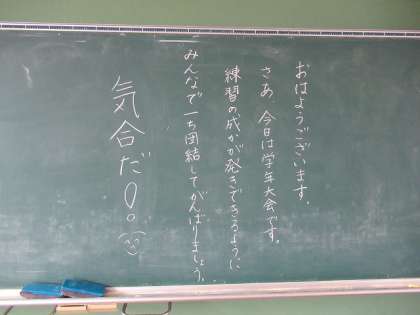 おはようございます。
さあ、今日は学年大会です。
練習の成かが発きできるように
みんなで一ち団結してがんばりましょう。
気合だ!!